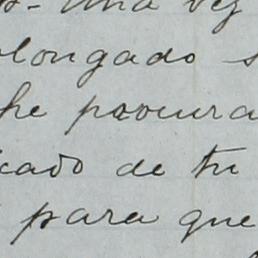 una vez
olongado s
he procura
cado de tu
para que